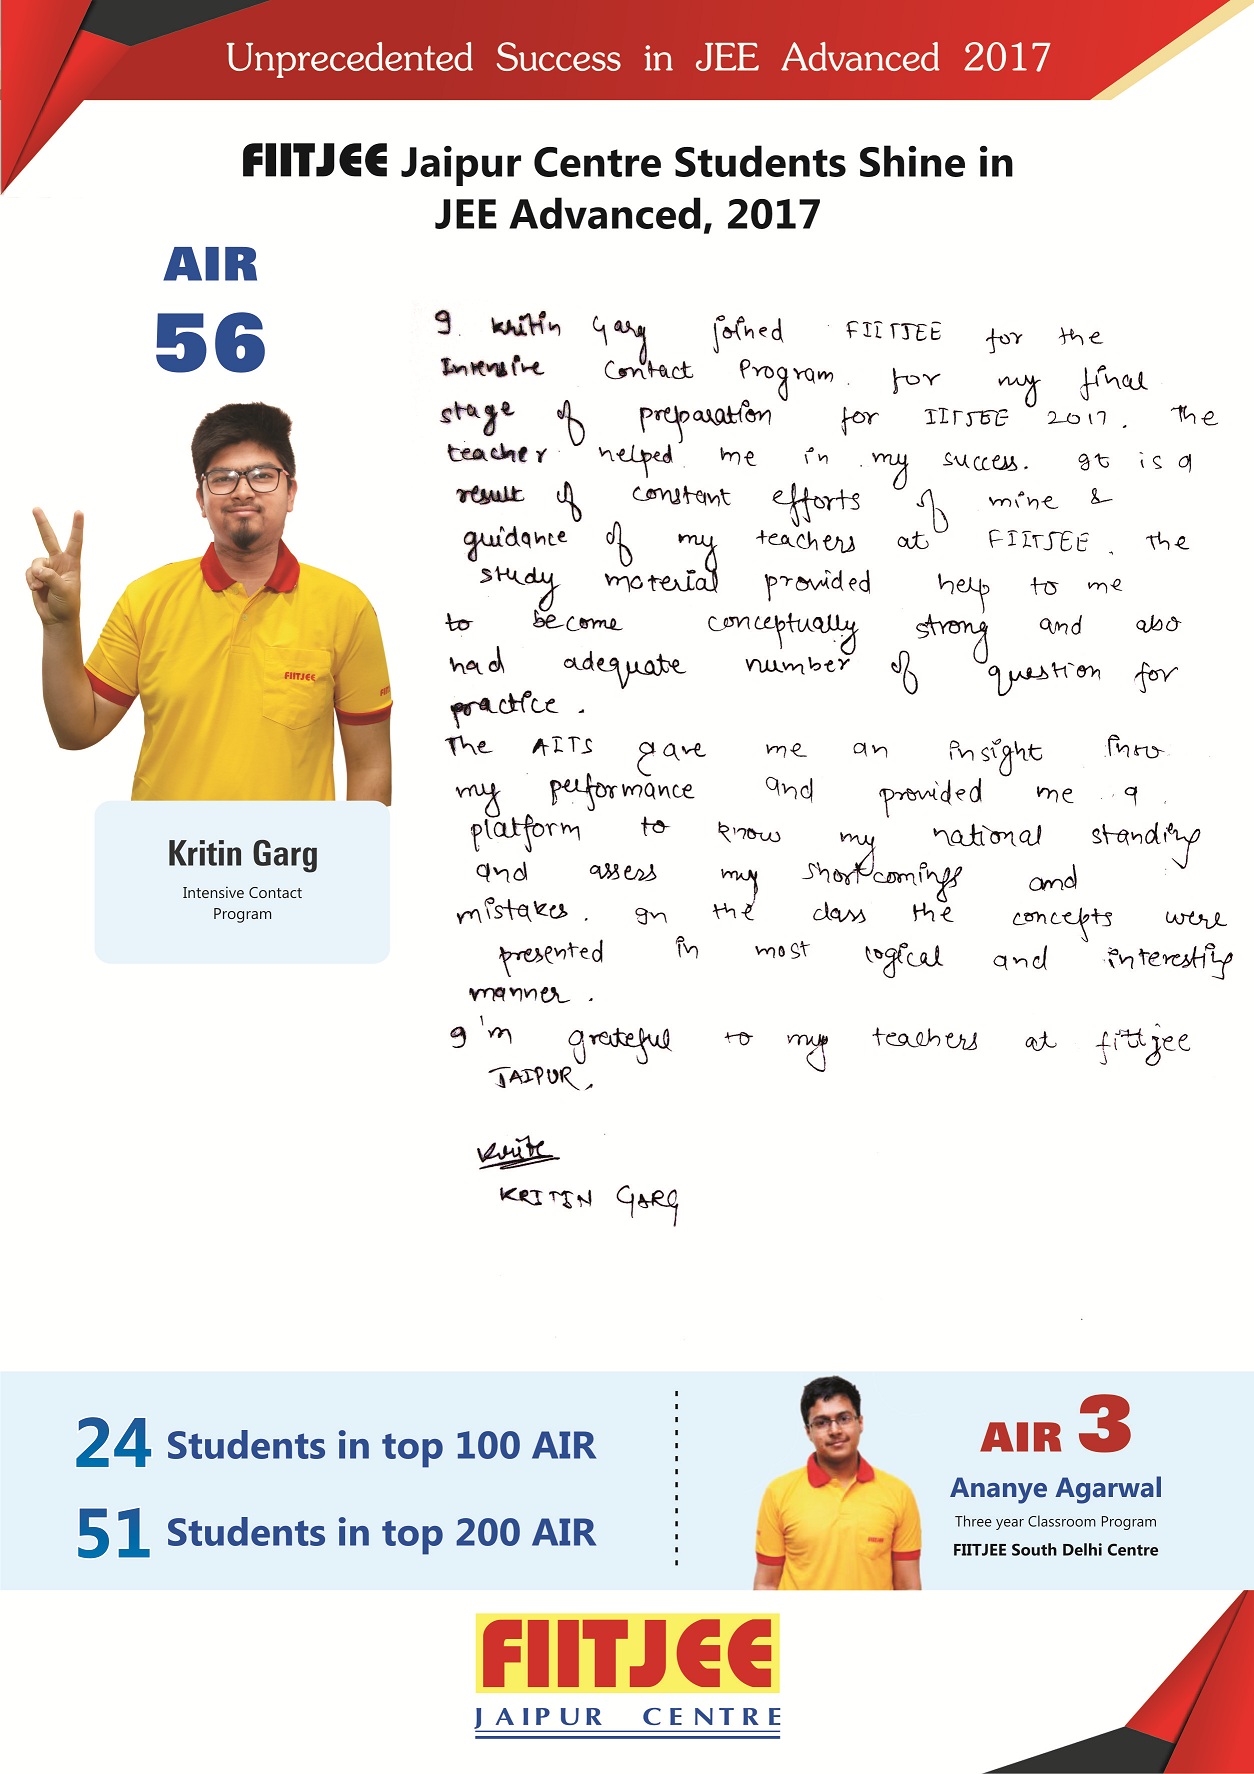 Unprecedented Success in JEE Advanced 2017
FIITJEE Jaipur Centre Students Shine in
JEE Advanced, 2017
AIR
56
FIITJEE
Kritin Garg
Intensive Contact
Program
I Kritin Garg joined FIITJEE for the
Intensive Contact Program for my final
stage of preparation for IITJEE 2017. The
teacher helped me in my success. It is a
result of constant efforts of mine &
guidance of my teachers at FIITJEE. The
study material provided help to me
to become conceptually strong and also
had adequate number of question for
practice.
The AITS gave me an insight into
my performance and provided me a
platform to know my national standing
and assess my shortcomings and
mistakes. In the class the concepts were
presented in most logical and interesting
manner.
I'm grateful to my teachers at fiitjee
JAIPUR.
KRITIN GARG
24 Students in top 100 AIR
51 Students in top 200 AIR
AIR 3
Ananye Agarwal
Three year Classroom Program
FIITJEE South Delhi Centre
FIITJEE
JAIPUR CENTRE